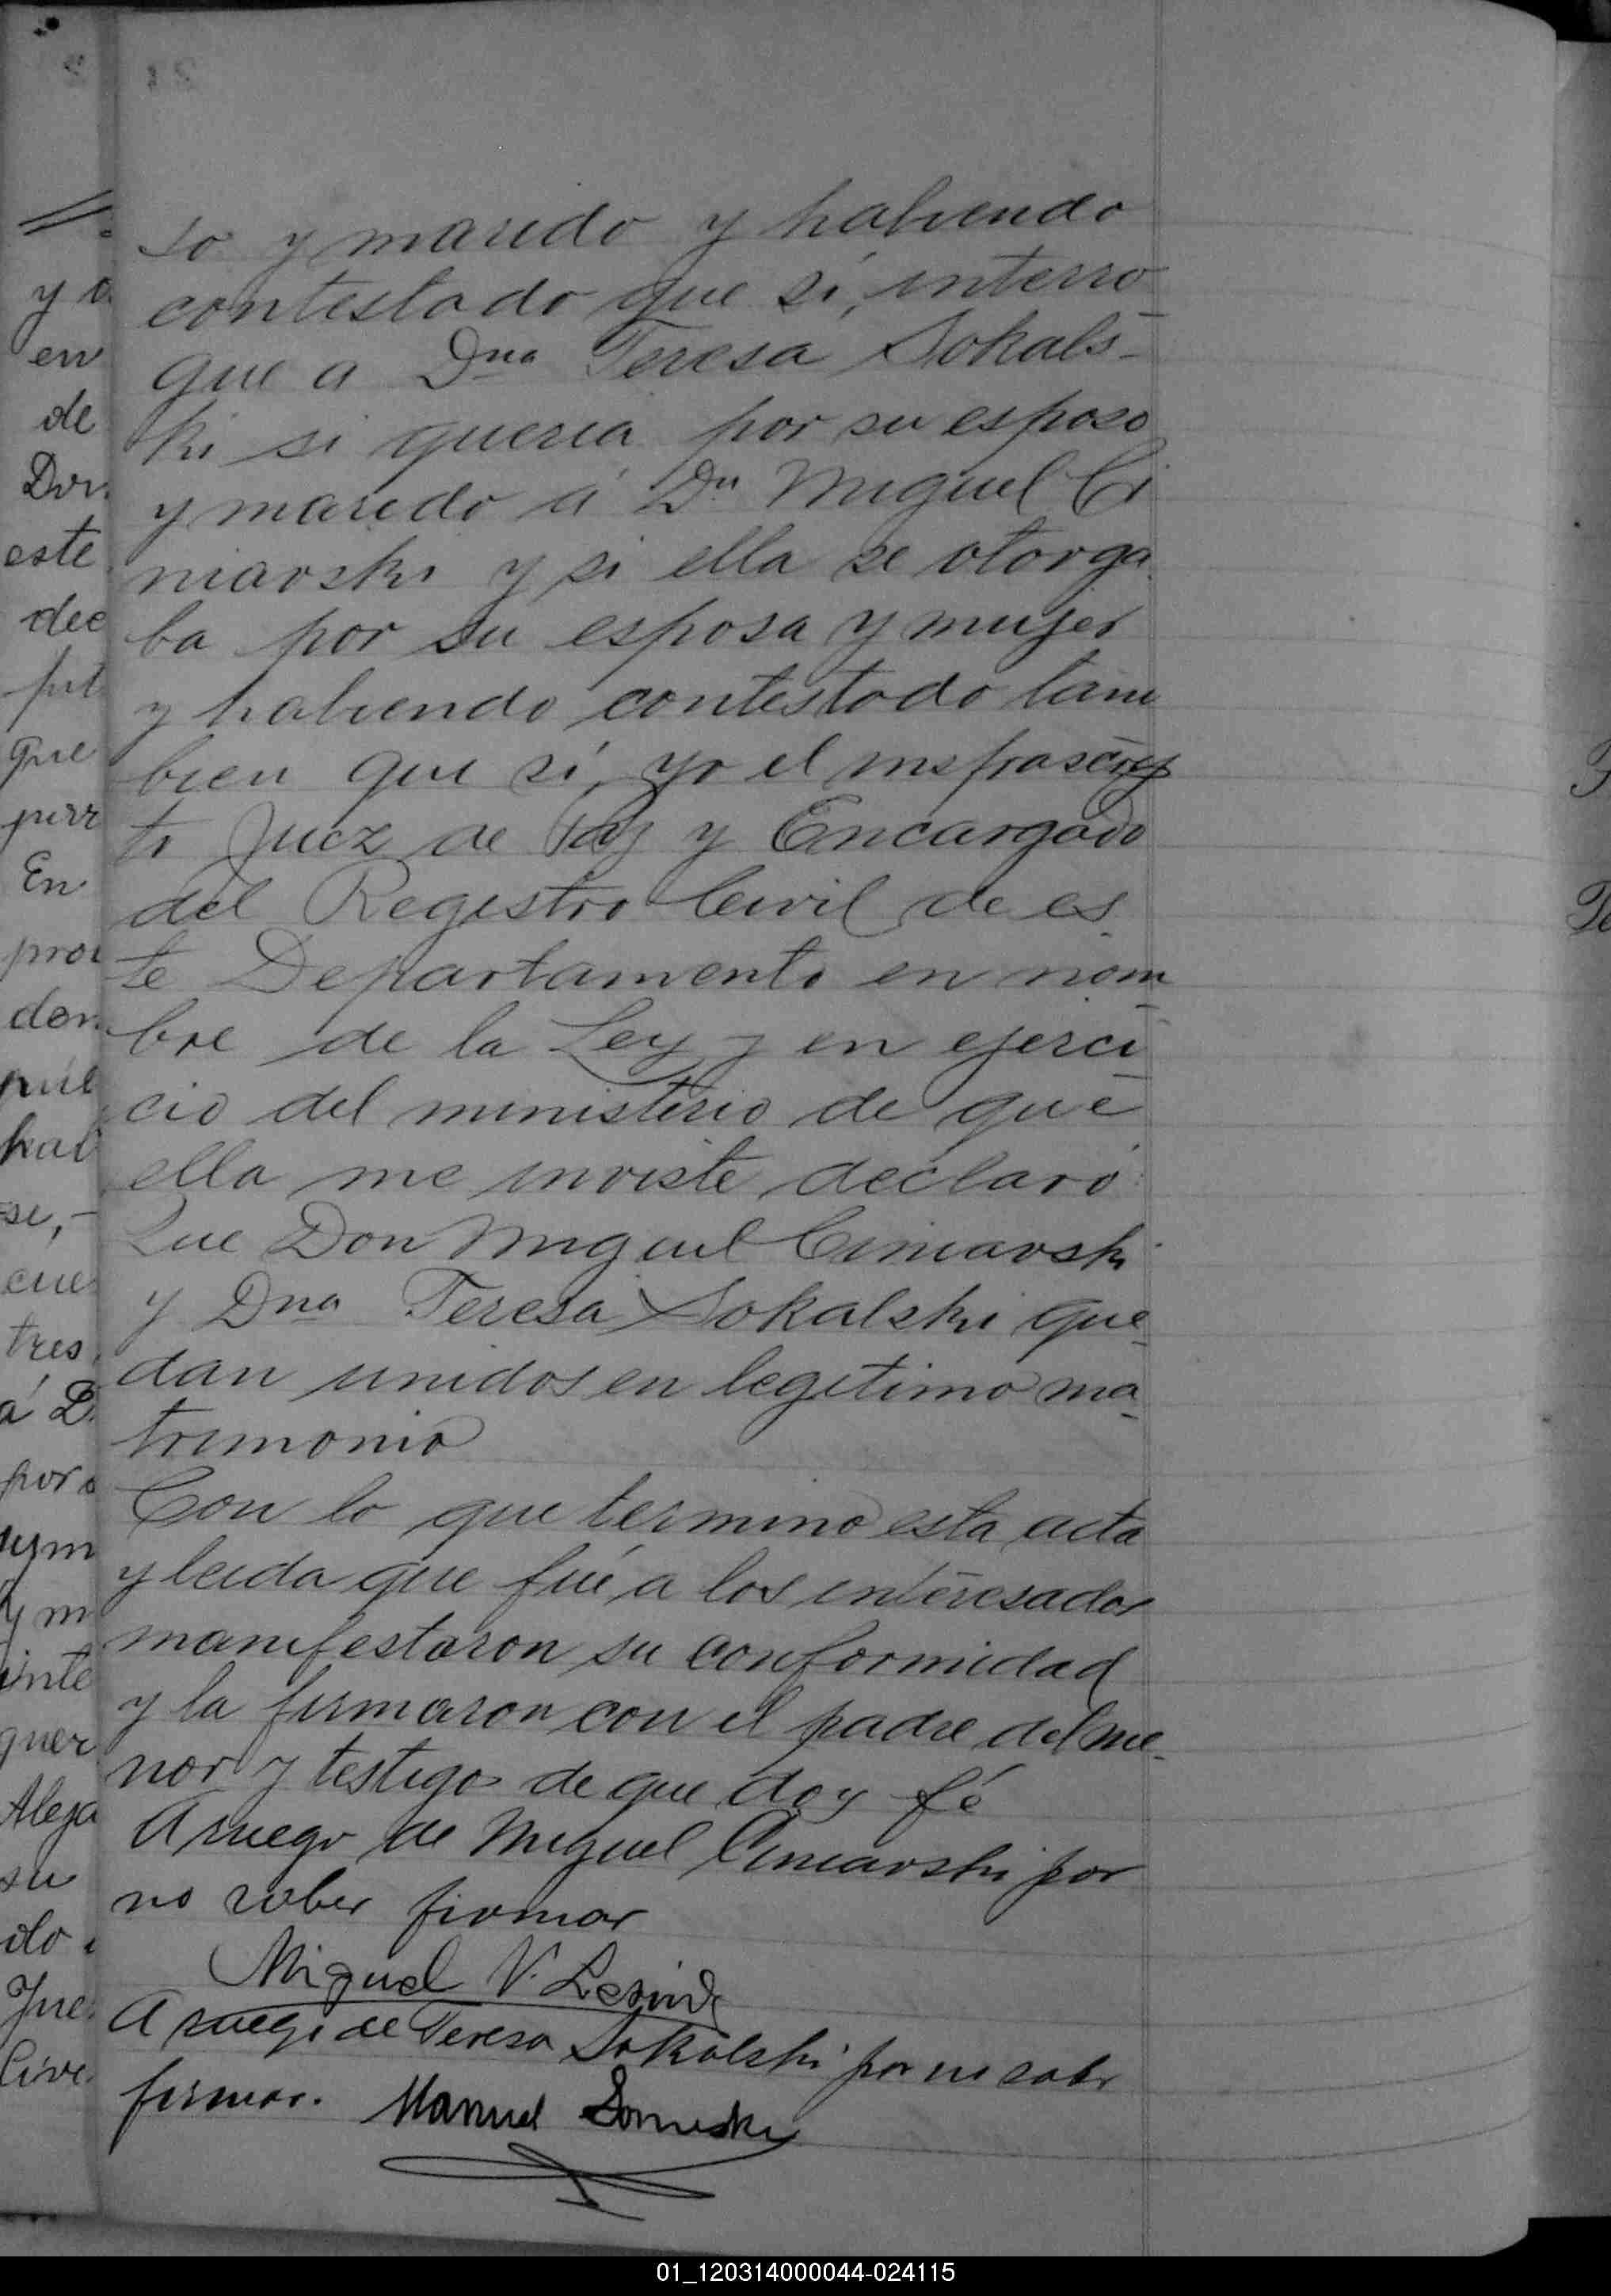 so y marido y habiendo
contestado que si, interro-
gue a Dna Teresa Sokals-
ki si queria por su esposo
y marido á Dn Miguel Ci
niarski y si ella se otorga
ba por su esposa y mujer
y habiendo contestado tam
bien que sí, yo el infrascrip
to Juez de Paz y Encargado
del Registro Civil de es-
te Departamento en nom-
bre de la Ley y en ejerci-
cio del ministerio de que
ella me inviste declaro:
Que Don Miguel Ciniarski
y Dna Teresa Sokalski que-
dan unidos en legitimo ma-
trimonio
Con lo que termino esta acta
y leida que fué a los interesados
manifestaron su conformidad
y la firmaron con el padre del me-
nor y testigos de que doy fé
A ruego de Miguel Ciniarski por
no saber firmar
Miguel V.
A ruego de Teresa Sokalski por no saber
firmar. Manuel
y
en
de
Don
este
dec
que
En
den
hab
se,-
cue
tres
á D.
por
y m
inte
quer
Aleja
su
do
Jue
Civi
01_120314000044-024115